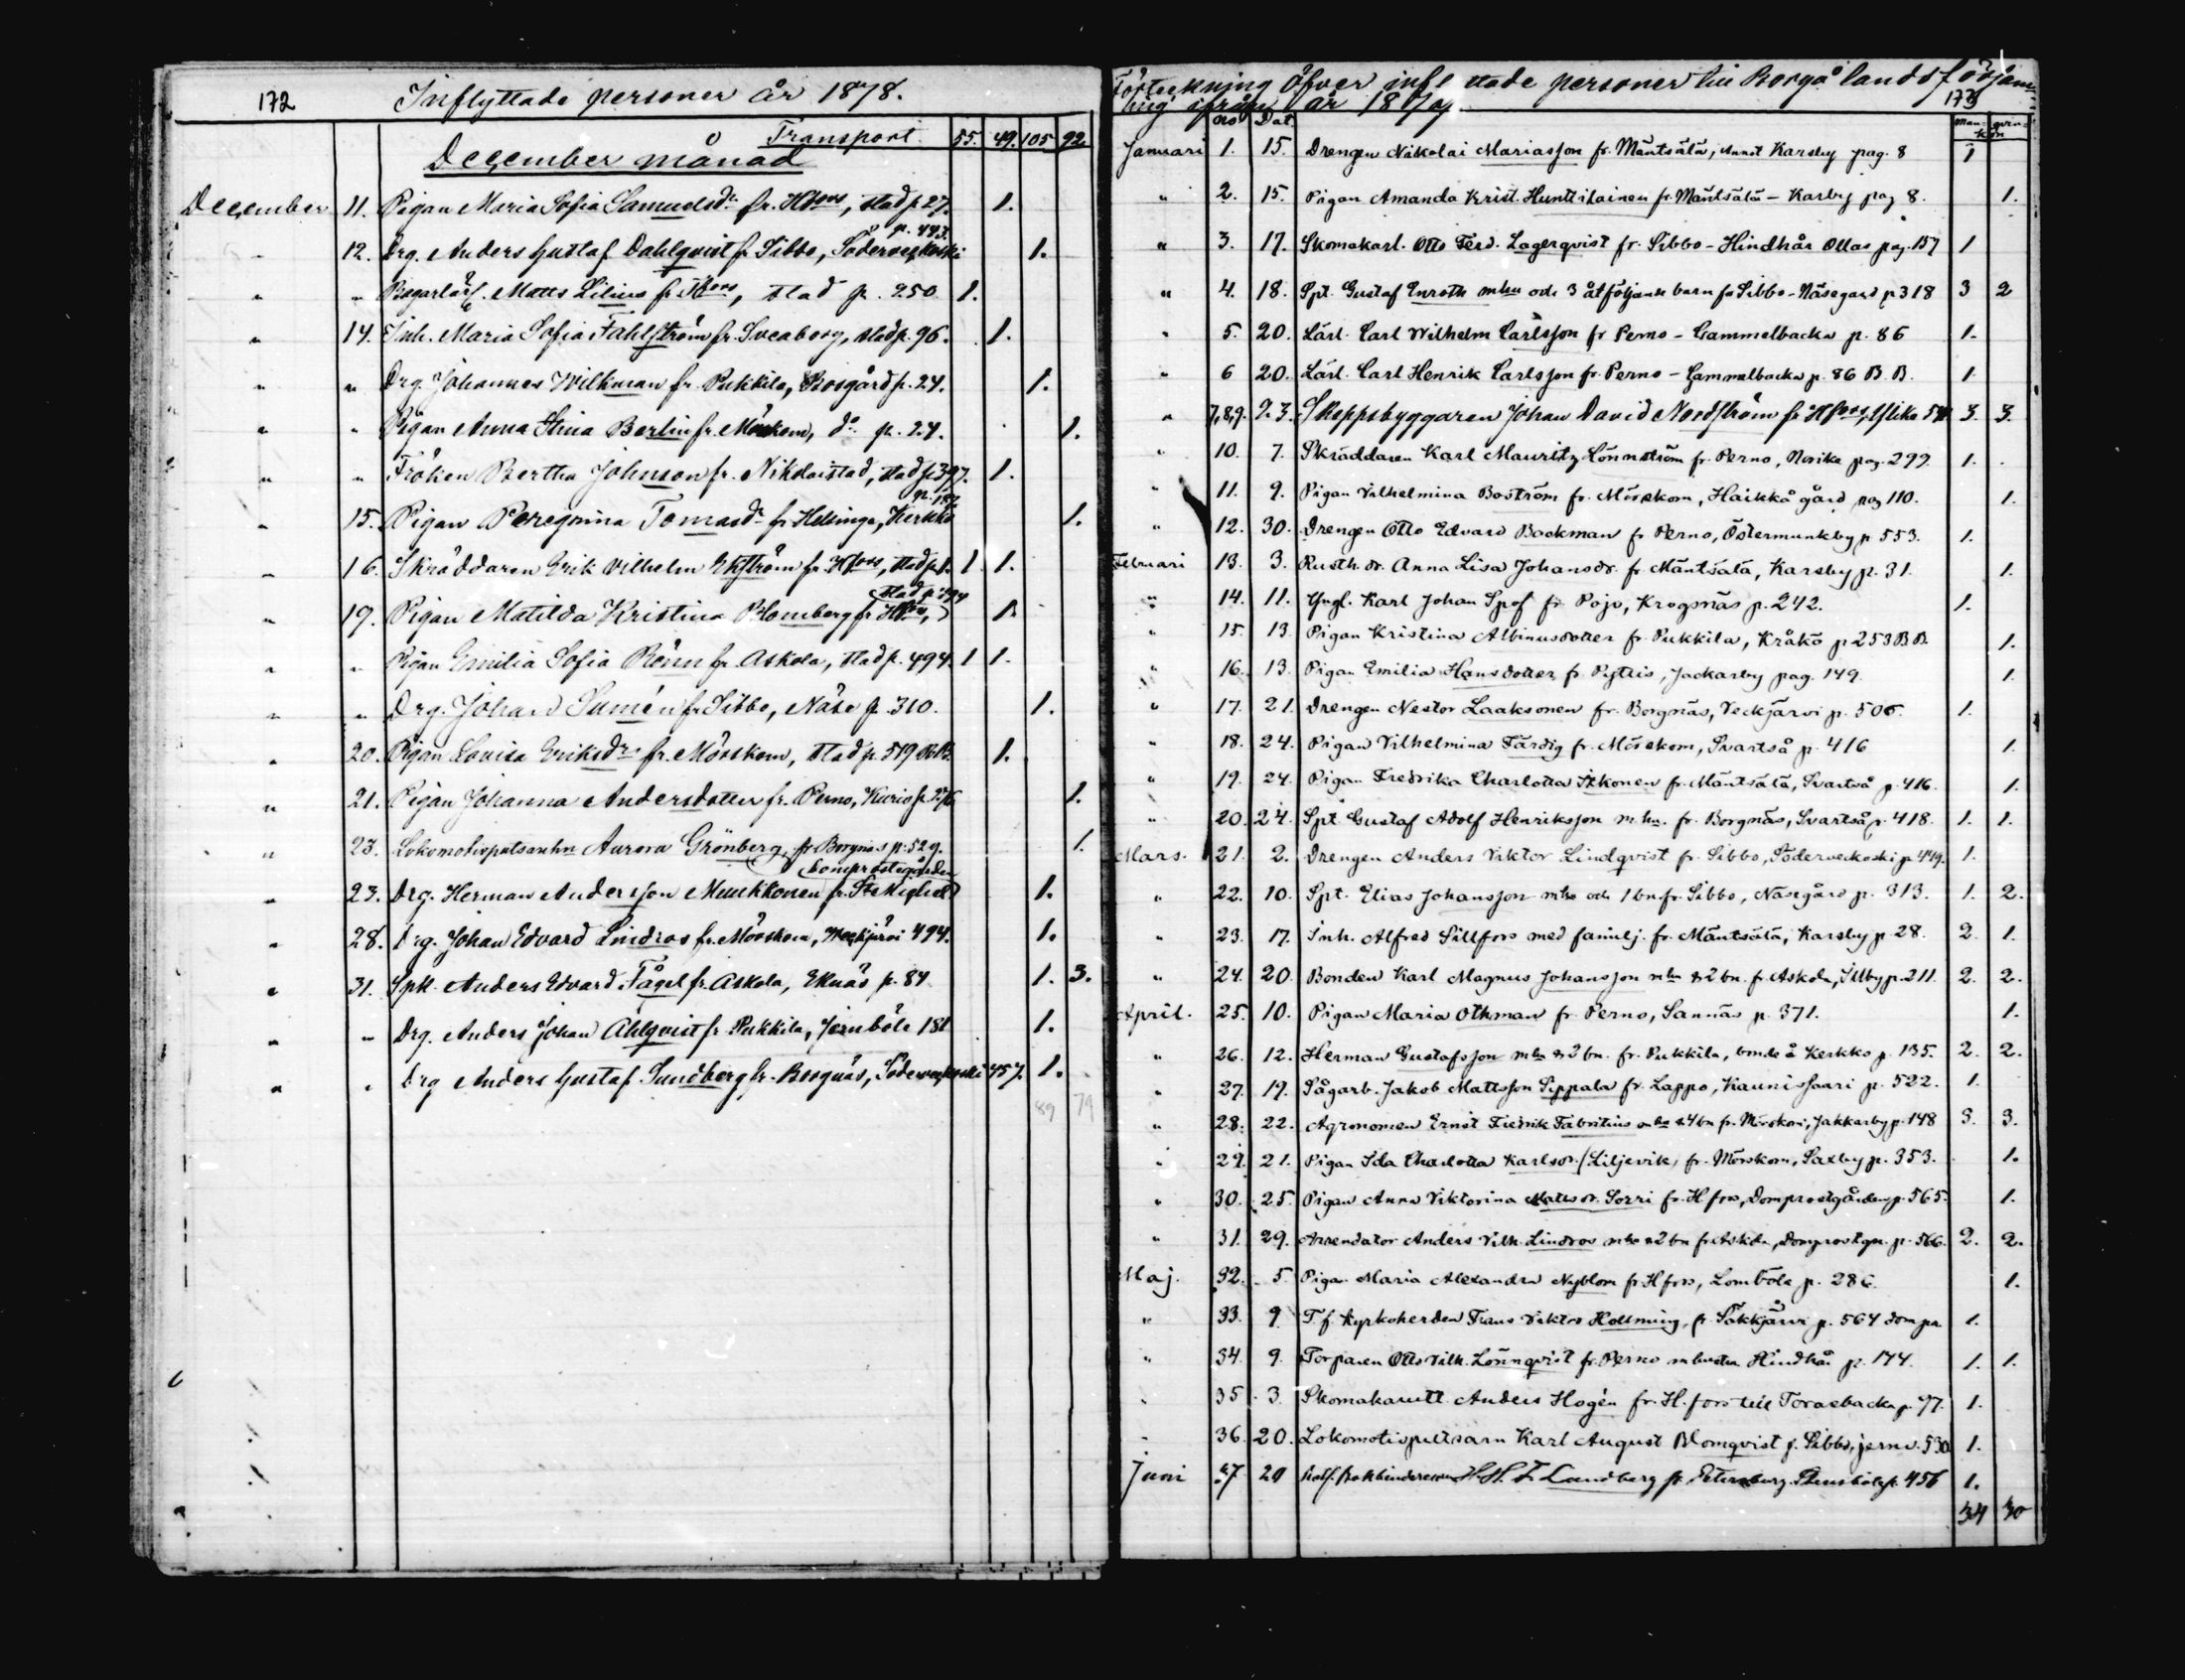 172 Inflyttade personer år 1878.
Transport 55. 49. 105 92
December månad
December 11. Pigan Maria Sofia Samuelsdr fr. Hfors, stad p. 27. 1.
p. 443.
" 12. Drg. Anders Gustaf Dahlqvist fr. Sibbo, Söderveckoski 1.
" " Bagarlärl. Matts Lilius fr. Hfors, stad p. 250 1.
" 14. Inh. Maria Sofia Fahlström fr. Sveaborg, stad p. 96. 1.
" " Drg. Johannes Wilkman fr. Pukkila, Bosgård p. 24. 1.
" " Pigan Anna Stina Berlin fr. Mörskom, do p. 24. 1.
" " Fröken Bertha Johnson fr. Nikolaistad, stad p. 397. 1.
" 15. Pigan Peregrina Tomasdr fr. Helsinge, Kerkko 1.
" 16. Skräddaren Erik Vilhelm Ekström fr. Hfors, stad p. 1. 1 1.
stad p. 494
" 19. Pigan Matilda Kristina Blomberg fr. Hfors, 1.
" " Pigan Emilia Sofia Rönn fr. Askola, stad p. 494. 1 1.
" " Drg. Johan Sumén fr. Sibbo, Näse p. 310. 1.
" 20. Pigan Lovisa Eriksdr fr. Mörskom, stad p. 519 BB. 1.
" 21. Pigan Johanna Andersdotter fr. Perno, Kurio p. 1.
" 23. Lokomotivputsarehn Aurora Grönberg, fr. Borgnäs p. 529. 1.
Domprostegården
" 23. Drg. Herman Andersson Muukkonen fr. St. Michel 1.
" 28. Drg. Johan Edvard Lindros fr. Mörskom, Weckjärvi 494. 1.
" 31. Spt. Anders Edvard Fågel fr. Askola, Eknäs p. 84 1. 3.
" " Drg. Anders Johan Åhlqvist fr. Pukkila, Jernböle 181 1.
" " Drg Anders Gustaf Sundberg fr. Borgnäs, Söderveckoski 457. 1.
89 79
Förteckning öfver inflyttade personer till Borgå landsförsam-
ling ifrån år 1879 173
no Dat. Man- qvin- kön
Januari 1. 15. Drengen Nikolai Mariasson fr. Mäntsälä, Karsby pag. 8 1
" 2. 15. Pigan Amanda Krist. Hunttilainen fr. Mäntsälä - Karsby pag 8. 1.
" 3. 17. Skomakarl. Otto Ferd. Lagerqvist fr. Sibbo - Hindhår Ollas pag. 157 1
" 4. 18. Spt. Gustaf Enroth mhu och 3 åtföljande barn fr Sibbo - Näsegård p 318 3 2
" 5. 20. Lärl. Carl Wilhelm Carlsson fr Perno - Gammelbacka p. 86 1.
" 6 20. Lärl. Carl Henrik Carlsson fr. Perno - Gammelbacka p. 86 B.B. 1.
" 7,8,9. 23. Skeppsbyggaren Johan David Nordström fr Hfors, 3. 3.
" 10. 7. Skräddaren Karl Mauritz Lönnström fr. Perno, Norike pag. 299. 1.
" 11. 9. Pigan Vilhelmina Boström fr. Mörskom, Haikkå gård pag 110. 1.
" 12. 30. Drengen Otto Edvard Backman fr Perno, Östermunkby p. 553. 1.
Februari 13. 3. Rusth. dr. Anna Lisa Johansdr. fr. Mäntsälä, Karsby p. 31. 1.
" 14. 11. Yngl. Karl Johan Spof fr Pojo, Krogsnäs p. 242. 1.
" 15. 13 Pigan Kristina Albinusdotter fr. Pukkila, Kråkö p. 253 BB 1.
" 16. 13. Pigan Emilia Hansdotter fr. Pyttis, Jackarby pag. 149. 1.
" 17. 21. Drengen Nestor Laaksonen fr. Borgnäs, Veckjärvi p. 506. 1.
" 18. 24. Pigan Vilhelmina Färdig fr. Mörskom, Svartså p. 416 1.
" 19. 24. Pigan Fredrika Charlotta Itkonen fr. Mäntsälä, Svartså p. 416. 1.
" 20. 24. Spt. Gustaf Adolf Henriksson m. hu. fr. Borgnäs, Svartså p. 418. 1. 1.
Mars. 21. 2. Drengen Anders Viktor Lindqvist fr. Sibbo, Söderveckoski p. 449. 1.
" 22. 10. Spt. Elias Johansson mhu och 1 bn fr. Sibbo, Näsegård p. 313. 1. 2.
" 23. 17. Inh. Alfred Sillfors med familj. fr. Mäntsälä, Karsby p. 28. 2. 1.
" 24. 20. Bonden Karl Magnus Johansson mhu & 2 bn. fr. Askola, Illby p. 211. 2. 2.
April. 25. 10. Pigan Maria Othman fr Perno, Sannäs p. 371. 1.
" 26. 12. Herman Gustafsson mhu & 2 bn. fr. Pukkila, bonde å Kerkko p. 135. 2. 2.
" 27. 19. Sågarb. Jakob Mattsson Seppala fr. Lappo, Kaunissaari p. 522. 1.
" 28. 22. Agronomen Ernst Fredrik Fabritius mhu & 4 bn fr. Mörskom, Jakkarby p. 148 3. 3.
" 29. 21. Pigan Ida Charlotta Karlsdr. (Liljevik) fr. Mörskom, Saxby p. 353. 1.
" 30. 25. Pigan Anna Viktorina Mattsdr. Sorri fr. Hfors, Domprostgården p. 565. 1.
" 31. 29. Arrendator Anders Vilh. Lindroos mhu & 2 bn fr. Askola, Domprostgn. p. 566. 2. 2.
Maj. 32. 5. Pigan Maria Alexandra Nyblom fr. Hfors, Lomböle p. 286. 1.
" 33. 9 T.f. kyrkoherden Frans Viktor Hollming, fr. Säkkjärvi p. 564 dom pr. 1.
" 34 9. Torparen Otto Vilh. Lönnqvist fr. Perno m hustru Hindhår p. 174. 1. 1.
" 35. 3 Skomakarutl. Anders Hogén fr. H.fors till Torasbacka p. 97. 1.
" 36. 20. Lokomotivputsarn Karl August Blomqvist f. Sibbo, jernv. 530 1.
Juni 37 29 H. F. Landberg fr. Petersburg p. 456 1.
34 30